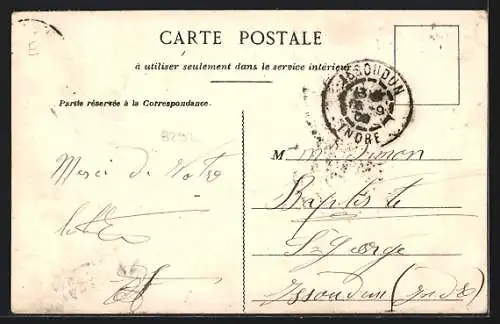 E
CARTE POSTALE
à utiliser seulement dans le service intérieur
ISSOUDUN
INDRE
Partie réservée à la Correspondance.
8292
M Simon
Merci de Votre
Baptiste
St George
Issoudun (Indre)